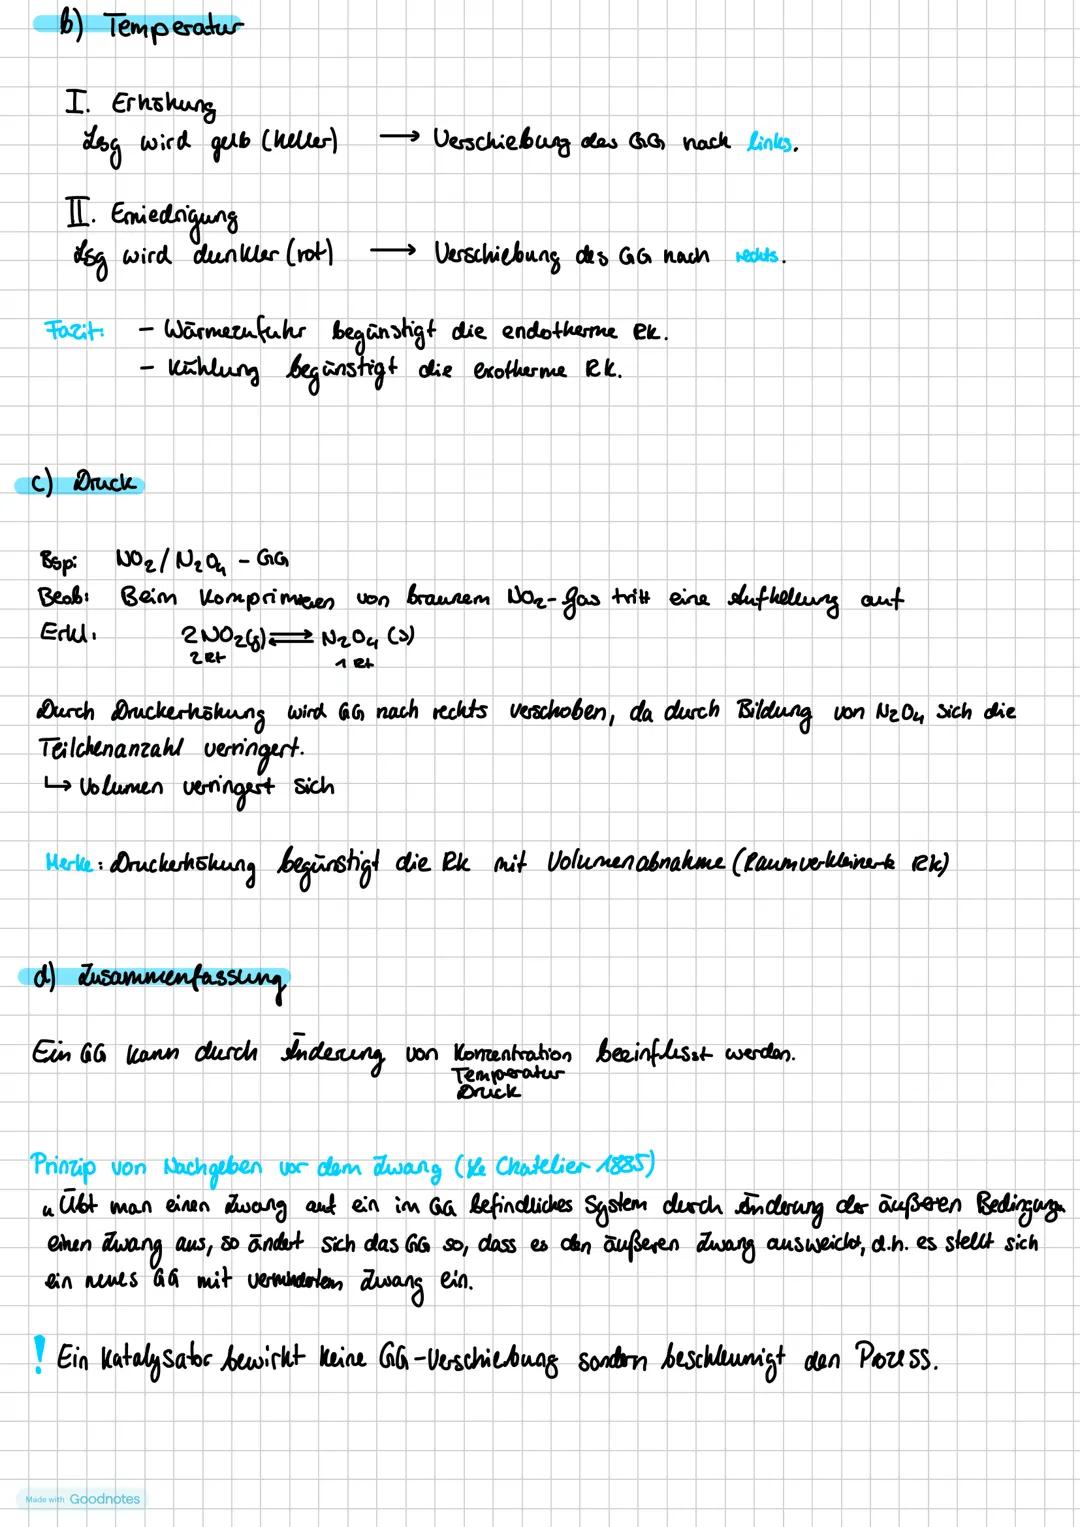 b) Temperatur
I. Erhöhung
Lsg wird gelb (heller) → Verschiebung des GG nach links.
II. Erniedrigung
Lsg wird dunkler (rot) → Verschiebung des GG nach rechts.
Fazit: - Wärmezufuhr begünstigt die endotherme Rk.
- Kühlung begünstigt die exotherme Rk.
c) Druck
Bsp: NO2/N2O4 - GG
Beob: Beim Komprimieren von braunem NO2-gas tritt eine Aufhellung auf
Erkl: 2NO2(g) ⇌ N2O4 (s)
2 1
Durch Druckerhöhung wird GG nach rechts verschoben, da durch Bildung von N2O4 sich die
Teilchenanzahl verringert.
↳ Volumen verringert sich
Merke: Druckerhöhung begünstigt die Rk mit Volumenabnahme (Raumverkleinerte Rk)
d) Zusammenfassung
Ein GG kann durch Änderung von Konzentration beeinflusst werden.
Temperatur
Druck
Prinzip von Nachgeben vor dem Zwang (Le Chatelier 1885)
„Übt man einen Zwang auf ein im GG befindliches System durch Änderung der äußeren Bedingungen
einen Zwang aus, so ändert sich das GG so, dass es den äußeren Zwang ausweicht, d.h. es stellt sich
ein neues GG mit vermindertem Zwang ein.
! Ein Katalysator bewirkt keine GG-Verschiebung sondern beschleunigt den Prozess.
Made with Goodnotes